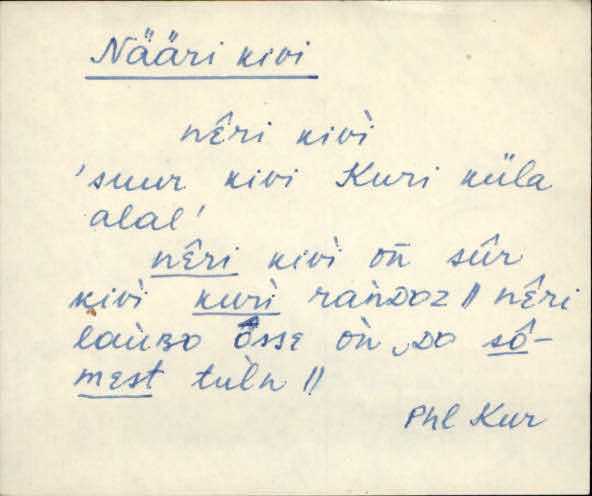 Nääri kivi
nêri kivì
'suur kivi Kuri küla
alal'
nêri kivì on̄ sûr
kivì kurì raǹDoz // nêri
laùʙo ôssᴇ oǹ, Do sô-
mest tuln̄ //
Phl Kur